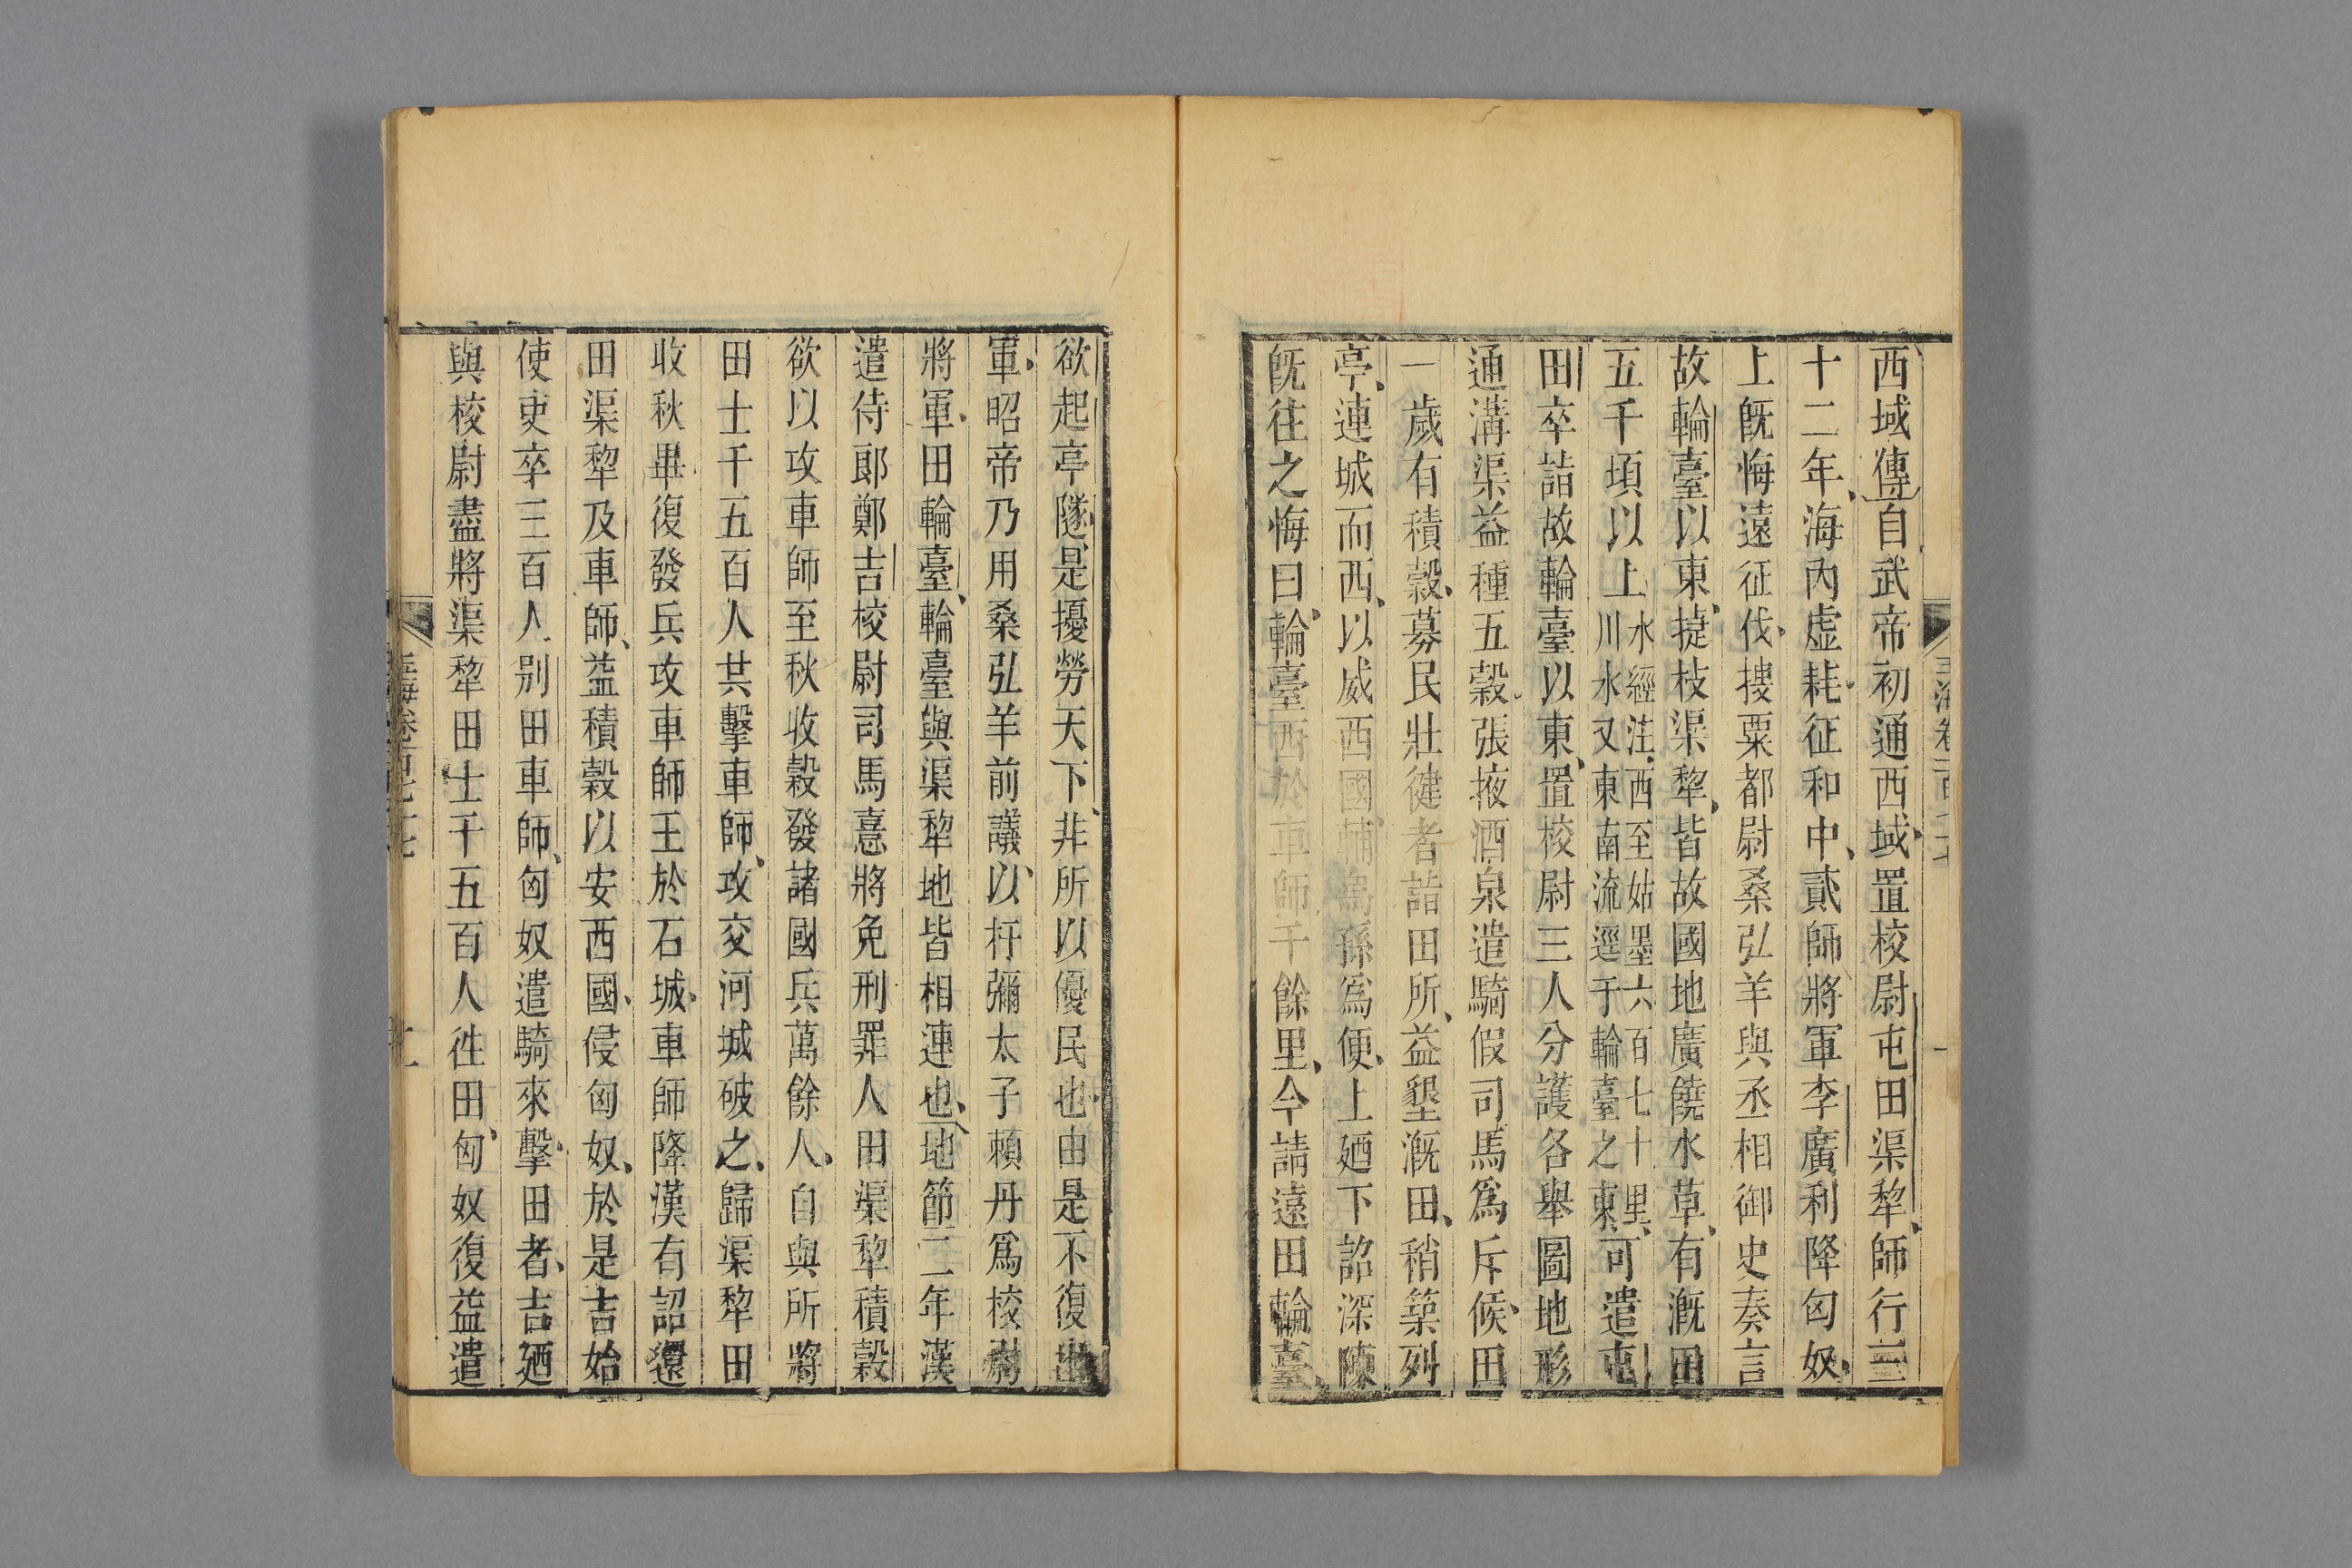 西域傳自武帝初通西域置校尉屯田渠犂師行三
十二年海內虛耗征和中貳師將軍李廣利降匈奴
上旣悔遠征伐搜粟都尉桑弘羊與丞相御史奏言
故輪臺以東揵枝渠犂皆故國地廣饒水草有漑田
五千頃以上水經注西至姑墨六百七十里川水又東南流逕于輪臺之東可遣屯
田卒詣故輪臺以東置校尉三人分護各舉圖地形
通溝渠益種五穀張掖酒泉遣騎假司馬爲斥候田
一歲有積穀募民壯健者詣田所益墾漑田稍築列
亭連城而西以威西國輔烏孫爲便上廼下詔深陳
旣往之悔曰輪臺西於車師千餘里今請遠田輪臺
欲起亭隧是擾勞天下非所以優民也由是不復出
軍昭帝乃用桑弘羊前議以杅彌太子賴丹爲校尉
將軍田輪臺輪臺與渠犂地皆相連也地節二年漢
遣侍郎鄭吉校尉司馬憙將免刑罪人田渠犂積穀
欲以攻車師至秋收穀發諸國兵萬餘人自與所將
田士千五百人共擊車師攻交河城破之歸渠犂田
收秋畢復發兵攻車師王於石城車師降漢有詔還
田渠犂及車師益積穀以安西國侵匈奴於是吉始
使吏卒三百人別田車師匈奴遣騎來擊田者吉廼
與校尉盡將渠犂田士千五百人往田匈奴復益遣